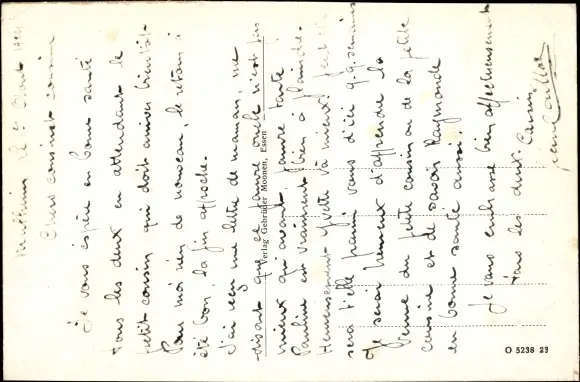 Mulheim le 5 Août
Chers cousin et cousine
Je vous espère en bonne santé
tous les deux en attendant le
petit cousin qui doit arriver bientôt.
Pour moi rien de nouveau, le retour a
été bon, la fin approche.
J'ai reçu une lettre de maman, me
disant que ce pauvre oncle n'est pas
mieux qu'avant, pauvre tante
Pauline est vraiment bien à plaindre.
Heureusement Yvette va mieux,
sera t'elle parmi vous d'ici q.q. semaines
Je serai heureux d'apprendre la
venue du petit cousin ou de la petite
cousine et de savoir Raymonde
en bonne santé aussi.
Je vous embrasse bien affectueusement
tous les deux
Verlag Gebrüder Moonen, Essen
O 5238 23